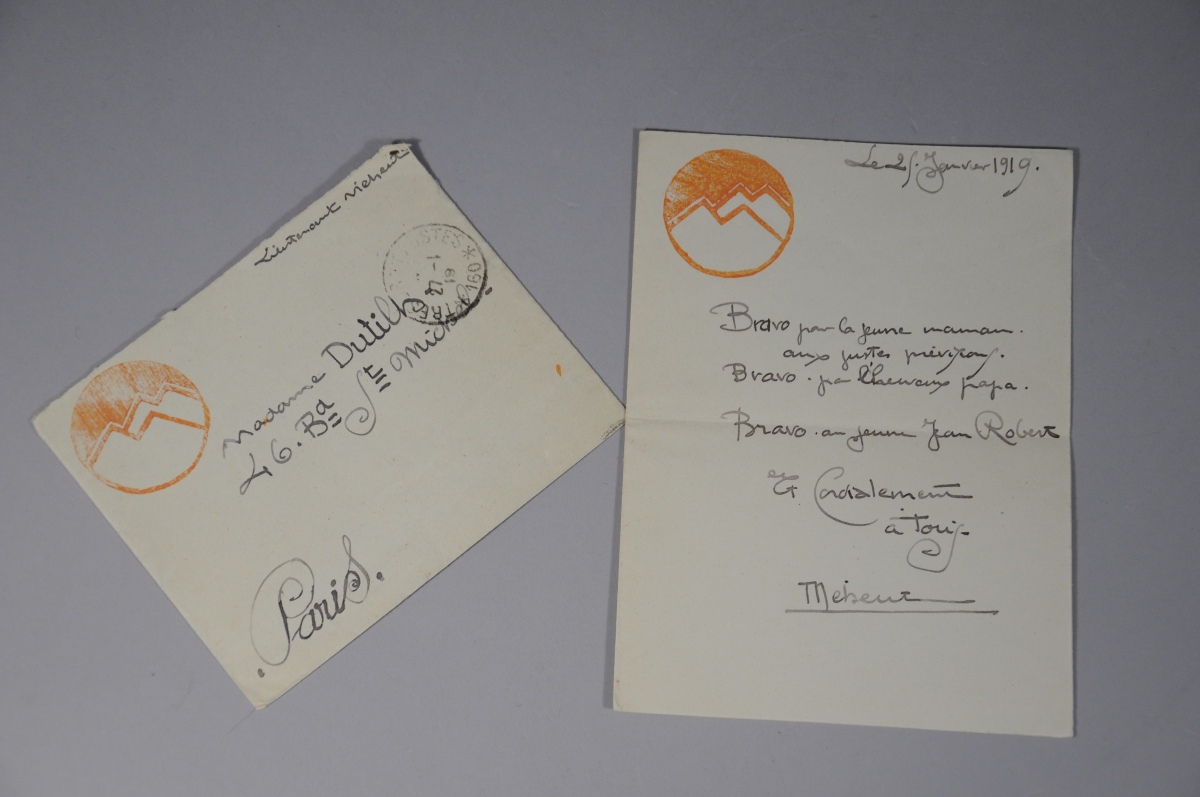 Lieutenant Méheut
POSTES
27 - 1
19
160 *
Madame Dutilh
46. Bd St Michel.
. Paris.
Le 25. Janvier 1919.
Bravo par la jeune maman.
aux justes prévisions.
Bravo. pr l'heureux papa.
Bravo. au jeune Jean Robert
Et Cordialement
à Tous.
Méheut